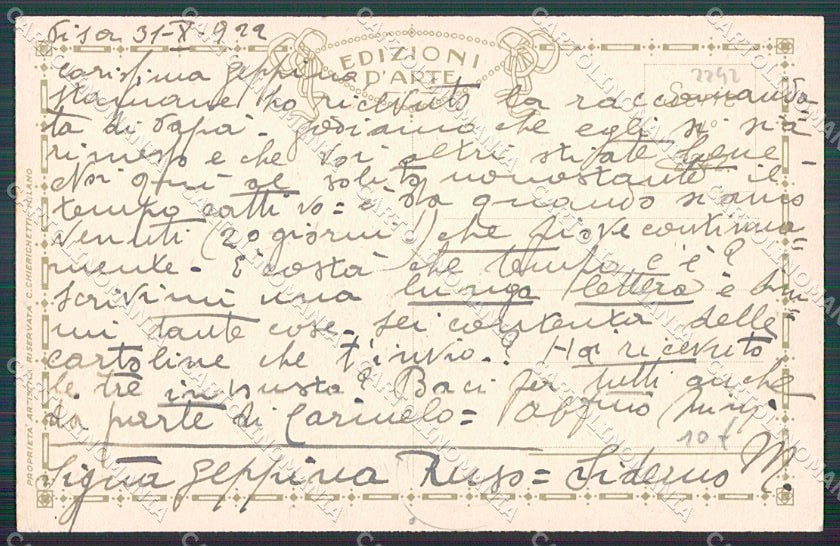 Pisa 31-X-922
EDIZIONI
D'ARTE
2242
Carissima Geppina
Stamane ho ricevuto la raccomanda-
ta di Papà. Godiamo che egli si sia
rimesso e che voi altri stiate bene
Noi qui al solito, nonostante il
tempo cattivo = è da quando siamo
venuti (20 giorni) che piove continua=
mente. E costà che tempo c'è?
Scrivimi una lunga lettera e
mi tante cose. Sei contenta delle
cartoline che t'invio? Hai ricevuto
le tre in busta? Baci per tutti anche
da parte di Carmelo =
10 £
Sig.na Geppina Russo = Siderno M.
PROPRIETÀ ARTISTICA RISERVATA C. CHIERICHETTI, MILANO
CARTOLINOMANIA